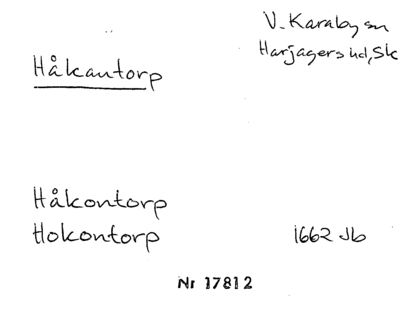 V. Karaby sn
Harjagers hd, Sk
Håkantorp
Håkontorp
Hokontorp 1662 Jb
Nr 17812